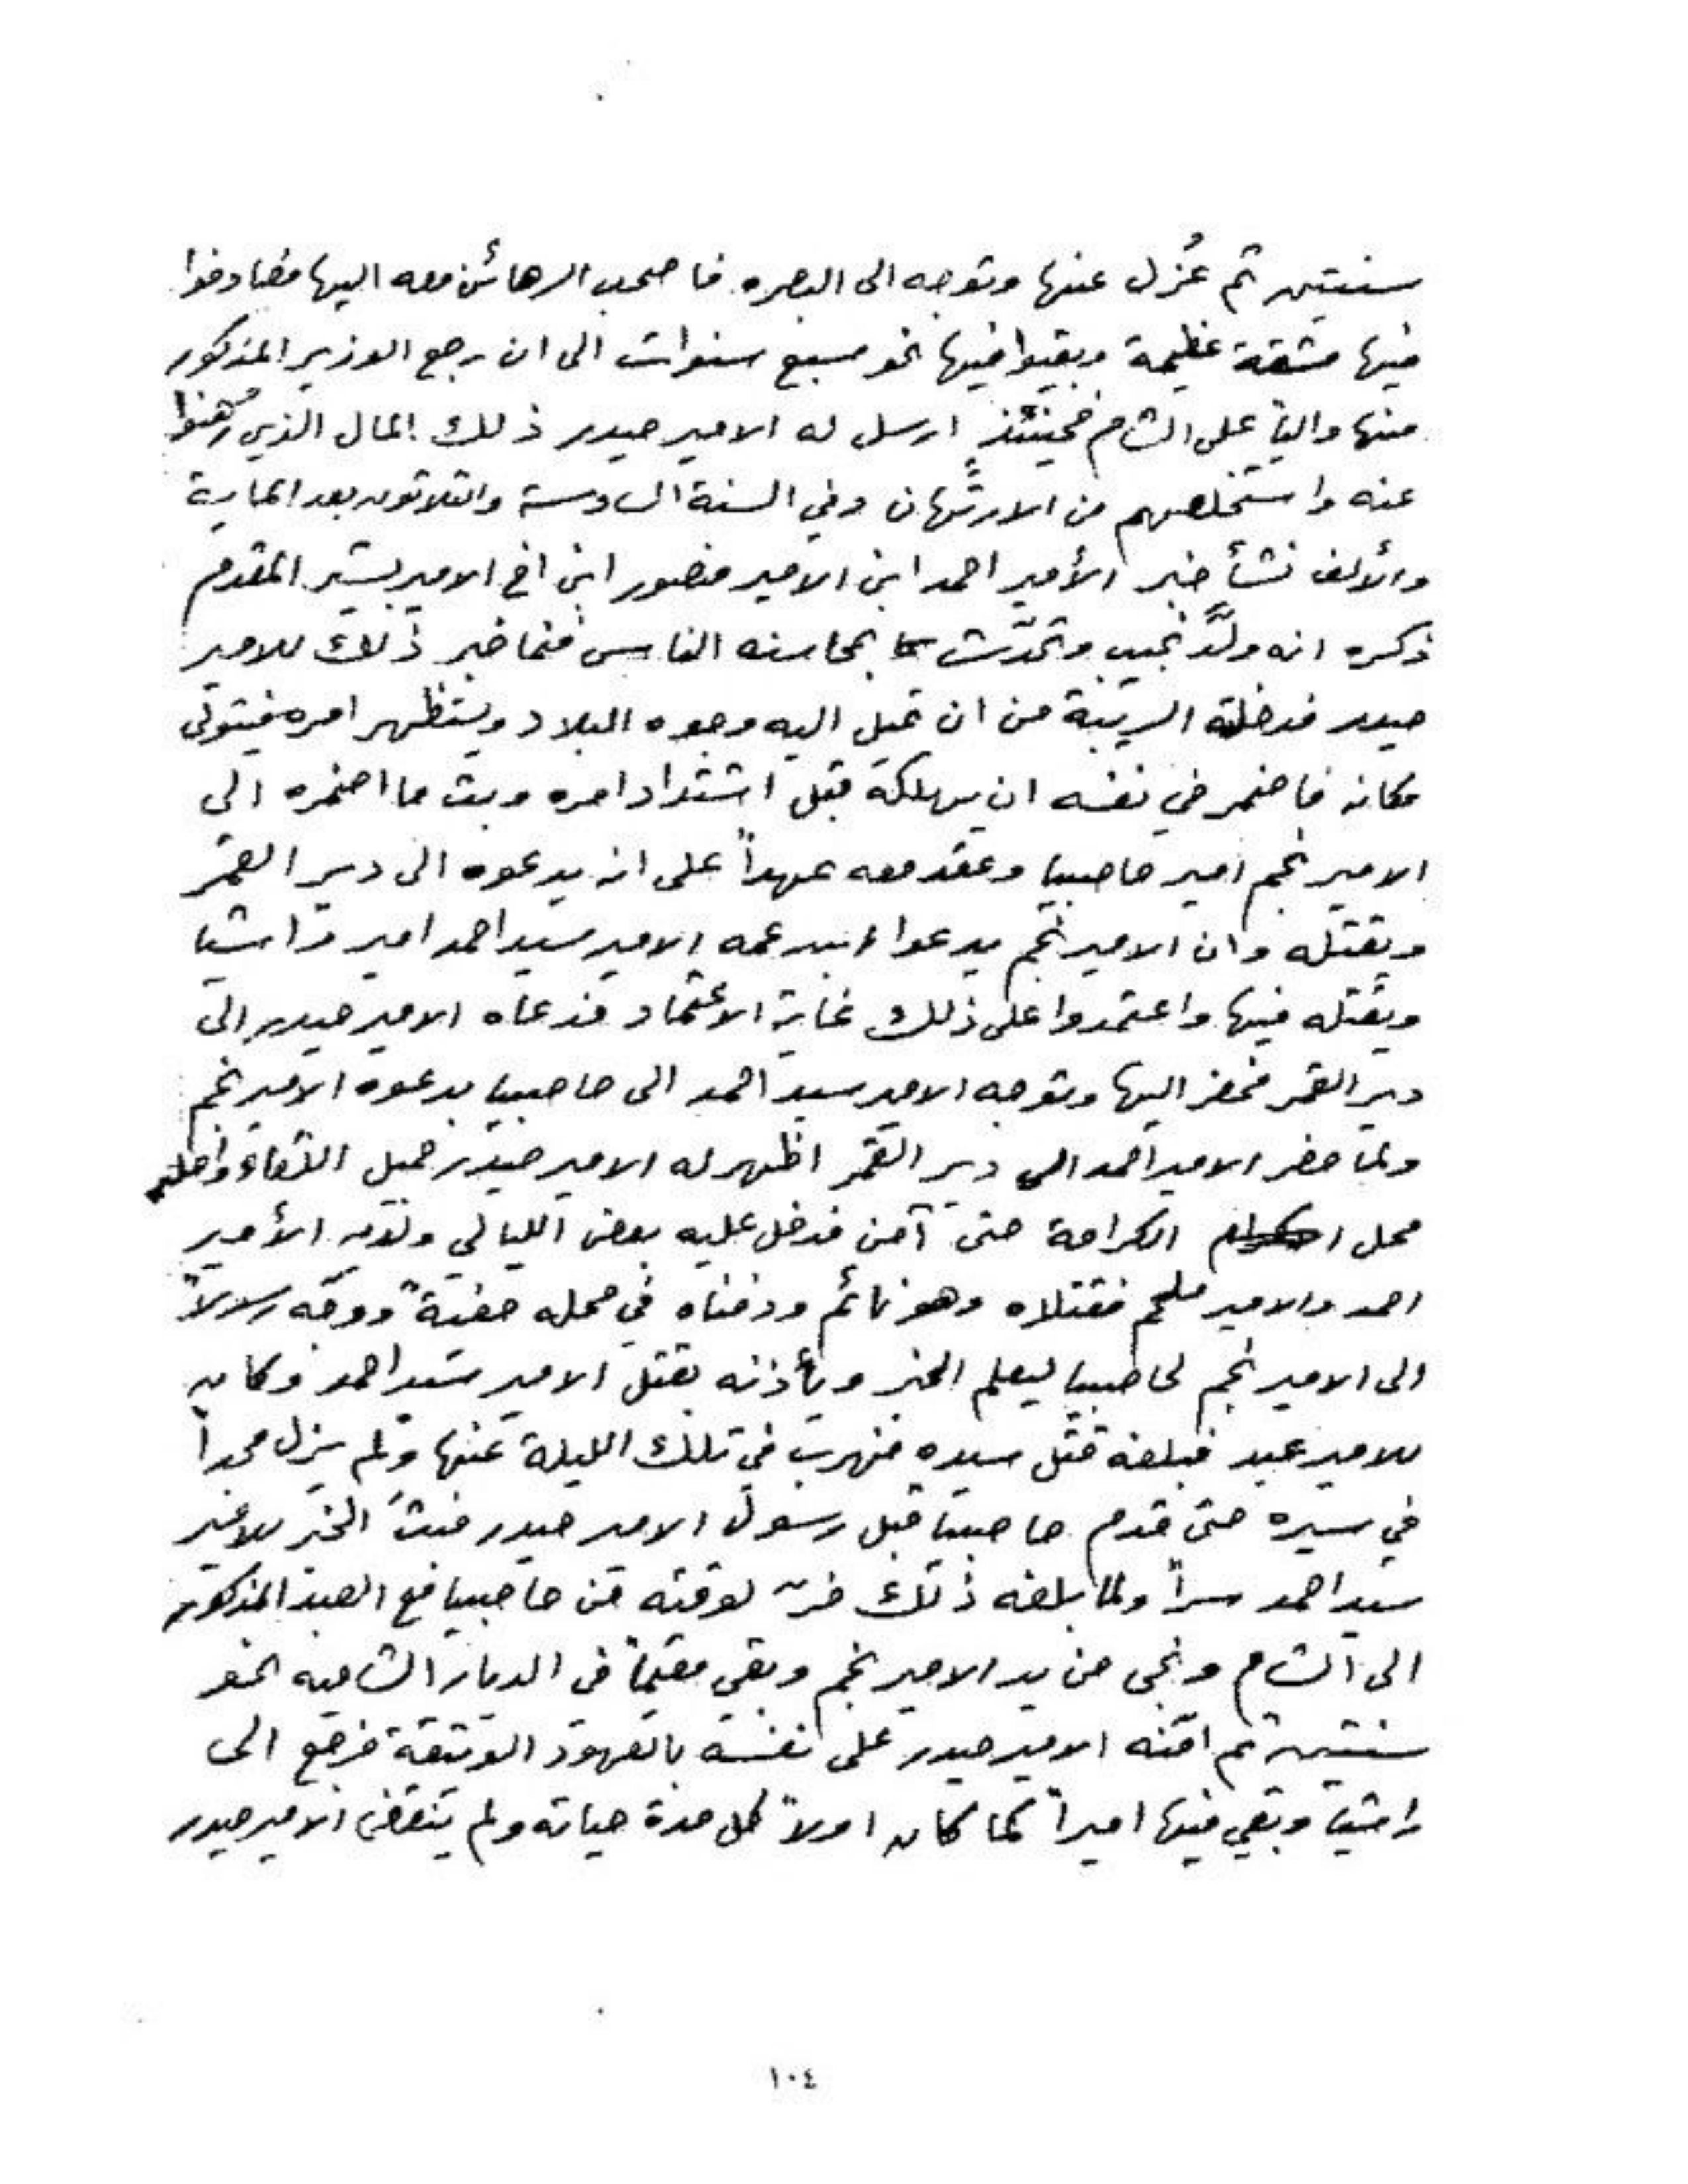 سنتين ثم عُزل عنها وتوجه الى البصره فاصحب الرهائن معه اليها فصادفوا
فيها مشقة عظيمة وبقيوا فيها نحو سبع سنوات الى ان رجع الوزير المذكور
منها والياً على الشام فحينئذٍ ارسل له الامير حيدر ذلك المال الذي رهنوا
عنه واستخلصهم من الارتهان وفي السنة السادسة والثلاثون بعد الماية
والألف نشأ خبر الأمير احمد ابن الامير منصور ابن اخ الامير بشير المقدم
ذكره انه ولدٌ نجيب وتحدّثت بمحاسنه الناس فنما خبر ذلك للامير
حيدر فدخلته الريبة من ان تميل اليه وجوه البلاد ويستظهر امره فيتولى
مكانه فاضمر في نفسه ان يهلكه قبل اشتداد امره وبث ما اضمره الى
الامير نجم امير حاصبيا وعقد معه عهداً على انه يدعوه الى دير القمر
ويقتله وان الامير نجم يدعوا ابن عمه الامير سيد احمد امير راشيا
ويقتله فيها واعتمدوا على ذلك غاية الاعتماد فدعاه الامير حيدر الى
دير القمر فحضر اليها وتوجه الامير سيد احمد الى حاصبيا بدعوه الامير نجم
ولما حضر الامير احمد الى دير القمر اظهر له الامير حيدر جميل اللقاء واحله
محل الكرامة حتى آمن فدخل عليه بعض الليالي ولديه الأمير
احمد والامير ملحم فقتلاه وهو نائم ودفناه في محله خفيةً ووجّه رسولاً
الى الامير نجم لحاصبيا ليعلم الخبر ويأذنه بقتل الامير سيد احمد وكان
للامير عبد فبلغه قتل سيده فهرب في تلك الليلة عنها ولم يزل مجداً
في سيره حتى قدم حاصبيا قبل رسول الامير حيدر فبثَّ الخبر للامير
سيد احمد سراً ولما بلغه ذلك فرّ لوقته من حاصبيا مع العبد المذكور
الى الشام ونجى من يد الامير نجم وبقي مقيماً في الديار الشاميه نحو
سنتين ثم امّنه الامير حيدر على نفسه بالعهود الوثيقة فرجع الى
راشيا وبقي فيها اميراً كما كان اولاً كل مدة حياته ولم ينقض الامير حيدر
١٠٤